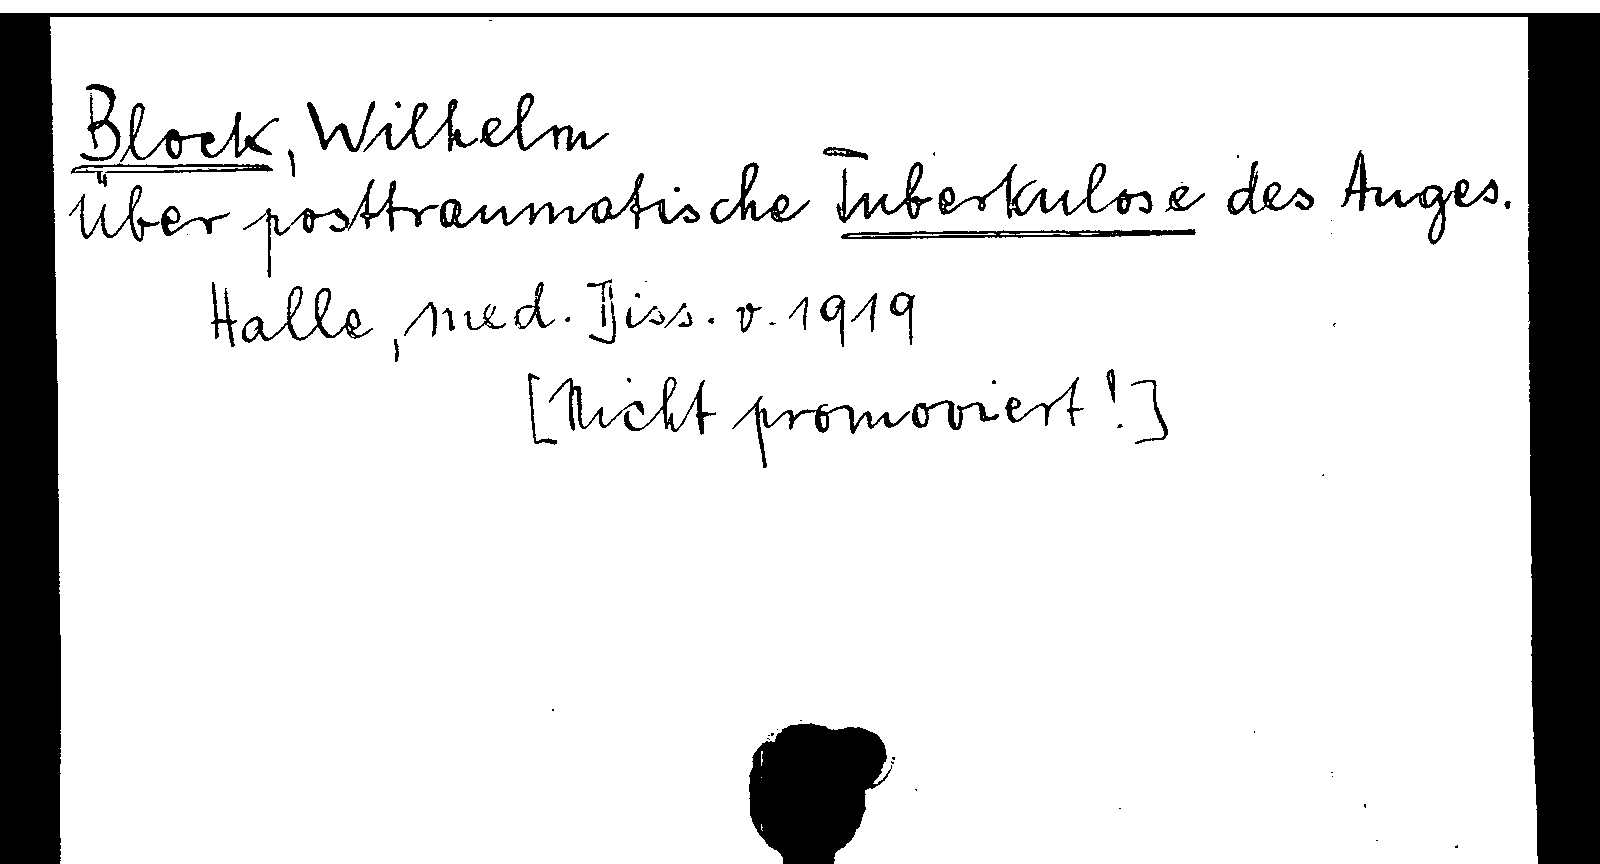 Block, Wilhelm
Über posttraumatische Tuberkulose des Auges.
Halle, med. Diss. v. 1919
[Nicht promoviert!]